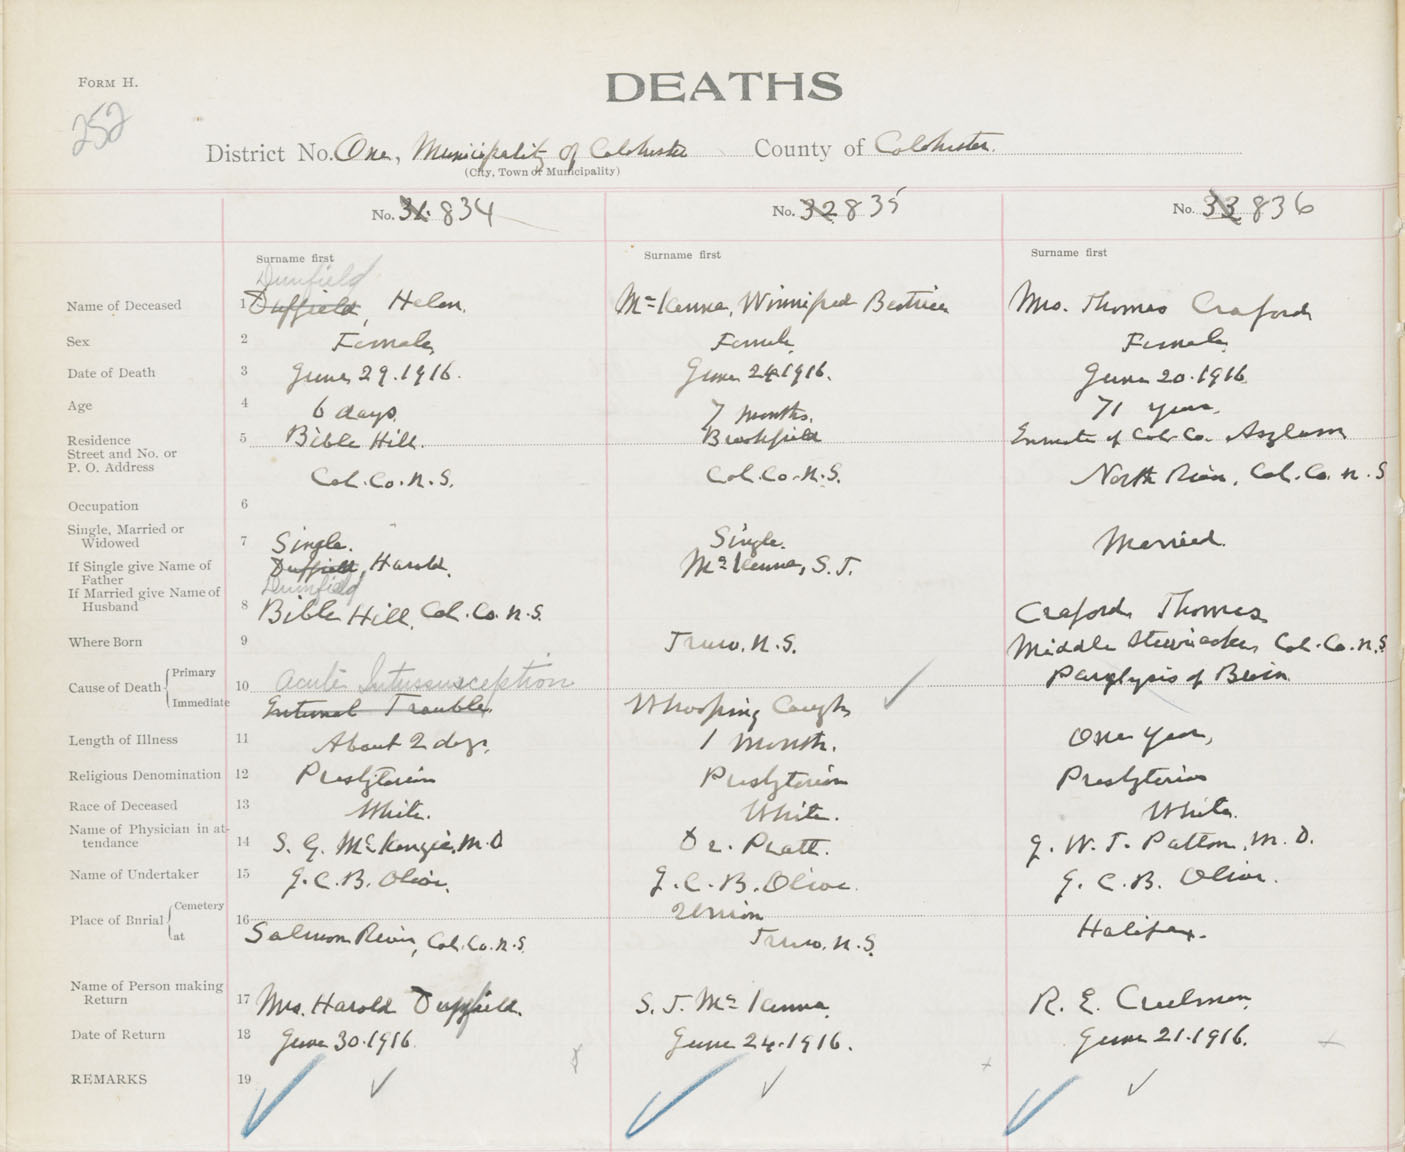 FORM H.
DEATHS
252
District No. One, Municipality of Colchester County of Colchester.
(City, Town or Municipality)
No. 31. 834 No. 32 835 No. 33 836
Surname first Surname first Surname first
Dumfield
Name of Deceased 1 Duffield, Helen. McKenna, Winnifred Beatrice Mrs. Thomas Craford
Sex 2 Female Female Female
Date of Death 3 June 29.1916. June 24.1916. June 20.1916
Age 4 6 days. 7 months. 71 years.
Residence 5 Bible Hill. Brookfield Inmate of Col. Co. Asylum
Street and No. or
P. O. Address Col. Co. N. S. Col. Co. N. S. North River, Col. Co. N. S
Occupation 6
Single, Married or
Widowed 7 Single. Single. Married.
If Single give Name of
Father Duffield, Harold. McKenna, S. J.
Dumfield
If Married give Name of
Husband 8 Bible Hill, Col. Co. N. S. Craford, Thomas
Where Born 9 Truro. N. S. Middle Stewiacke, Col. Co. N. S.
Cause of Death Primary 10 Acute Intussusception Paralysis of Brain
Immediate Internal Trouble. Whooping Cough
Length of Illness 11 About 2 days. 1 Month. One year,
Religious Denomination 12 Presbyterian Presbyterian Presbyterian
Race of Deceased 13 White. White. White.
Name of Physician in at-
tendance 14 S. G. McKenzie, M. D Dr. Pratt. J. W. T. Patton, M. D.
Name of Undertaker 15 J. C. B. Olive. J. C. B. Olive. J. C. B. Olive.
Place of Burial Cemetery 16 Union Halifax.
at Salmon River, Col. Co. N. S. Truro, N. S.
Name of Person making
Return 17 Mrs. Harold Duffield. S. J. McKenna. R. E. Creelman
Date of Return 18 June 30.1916. June 24.1916. June 21.1916.
REMARKS 19